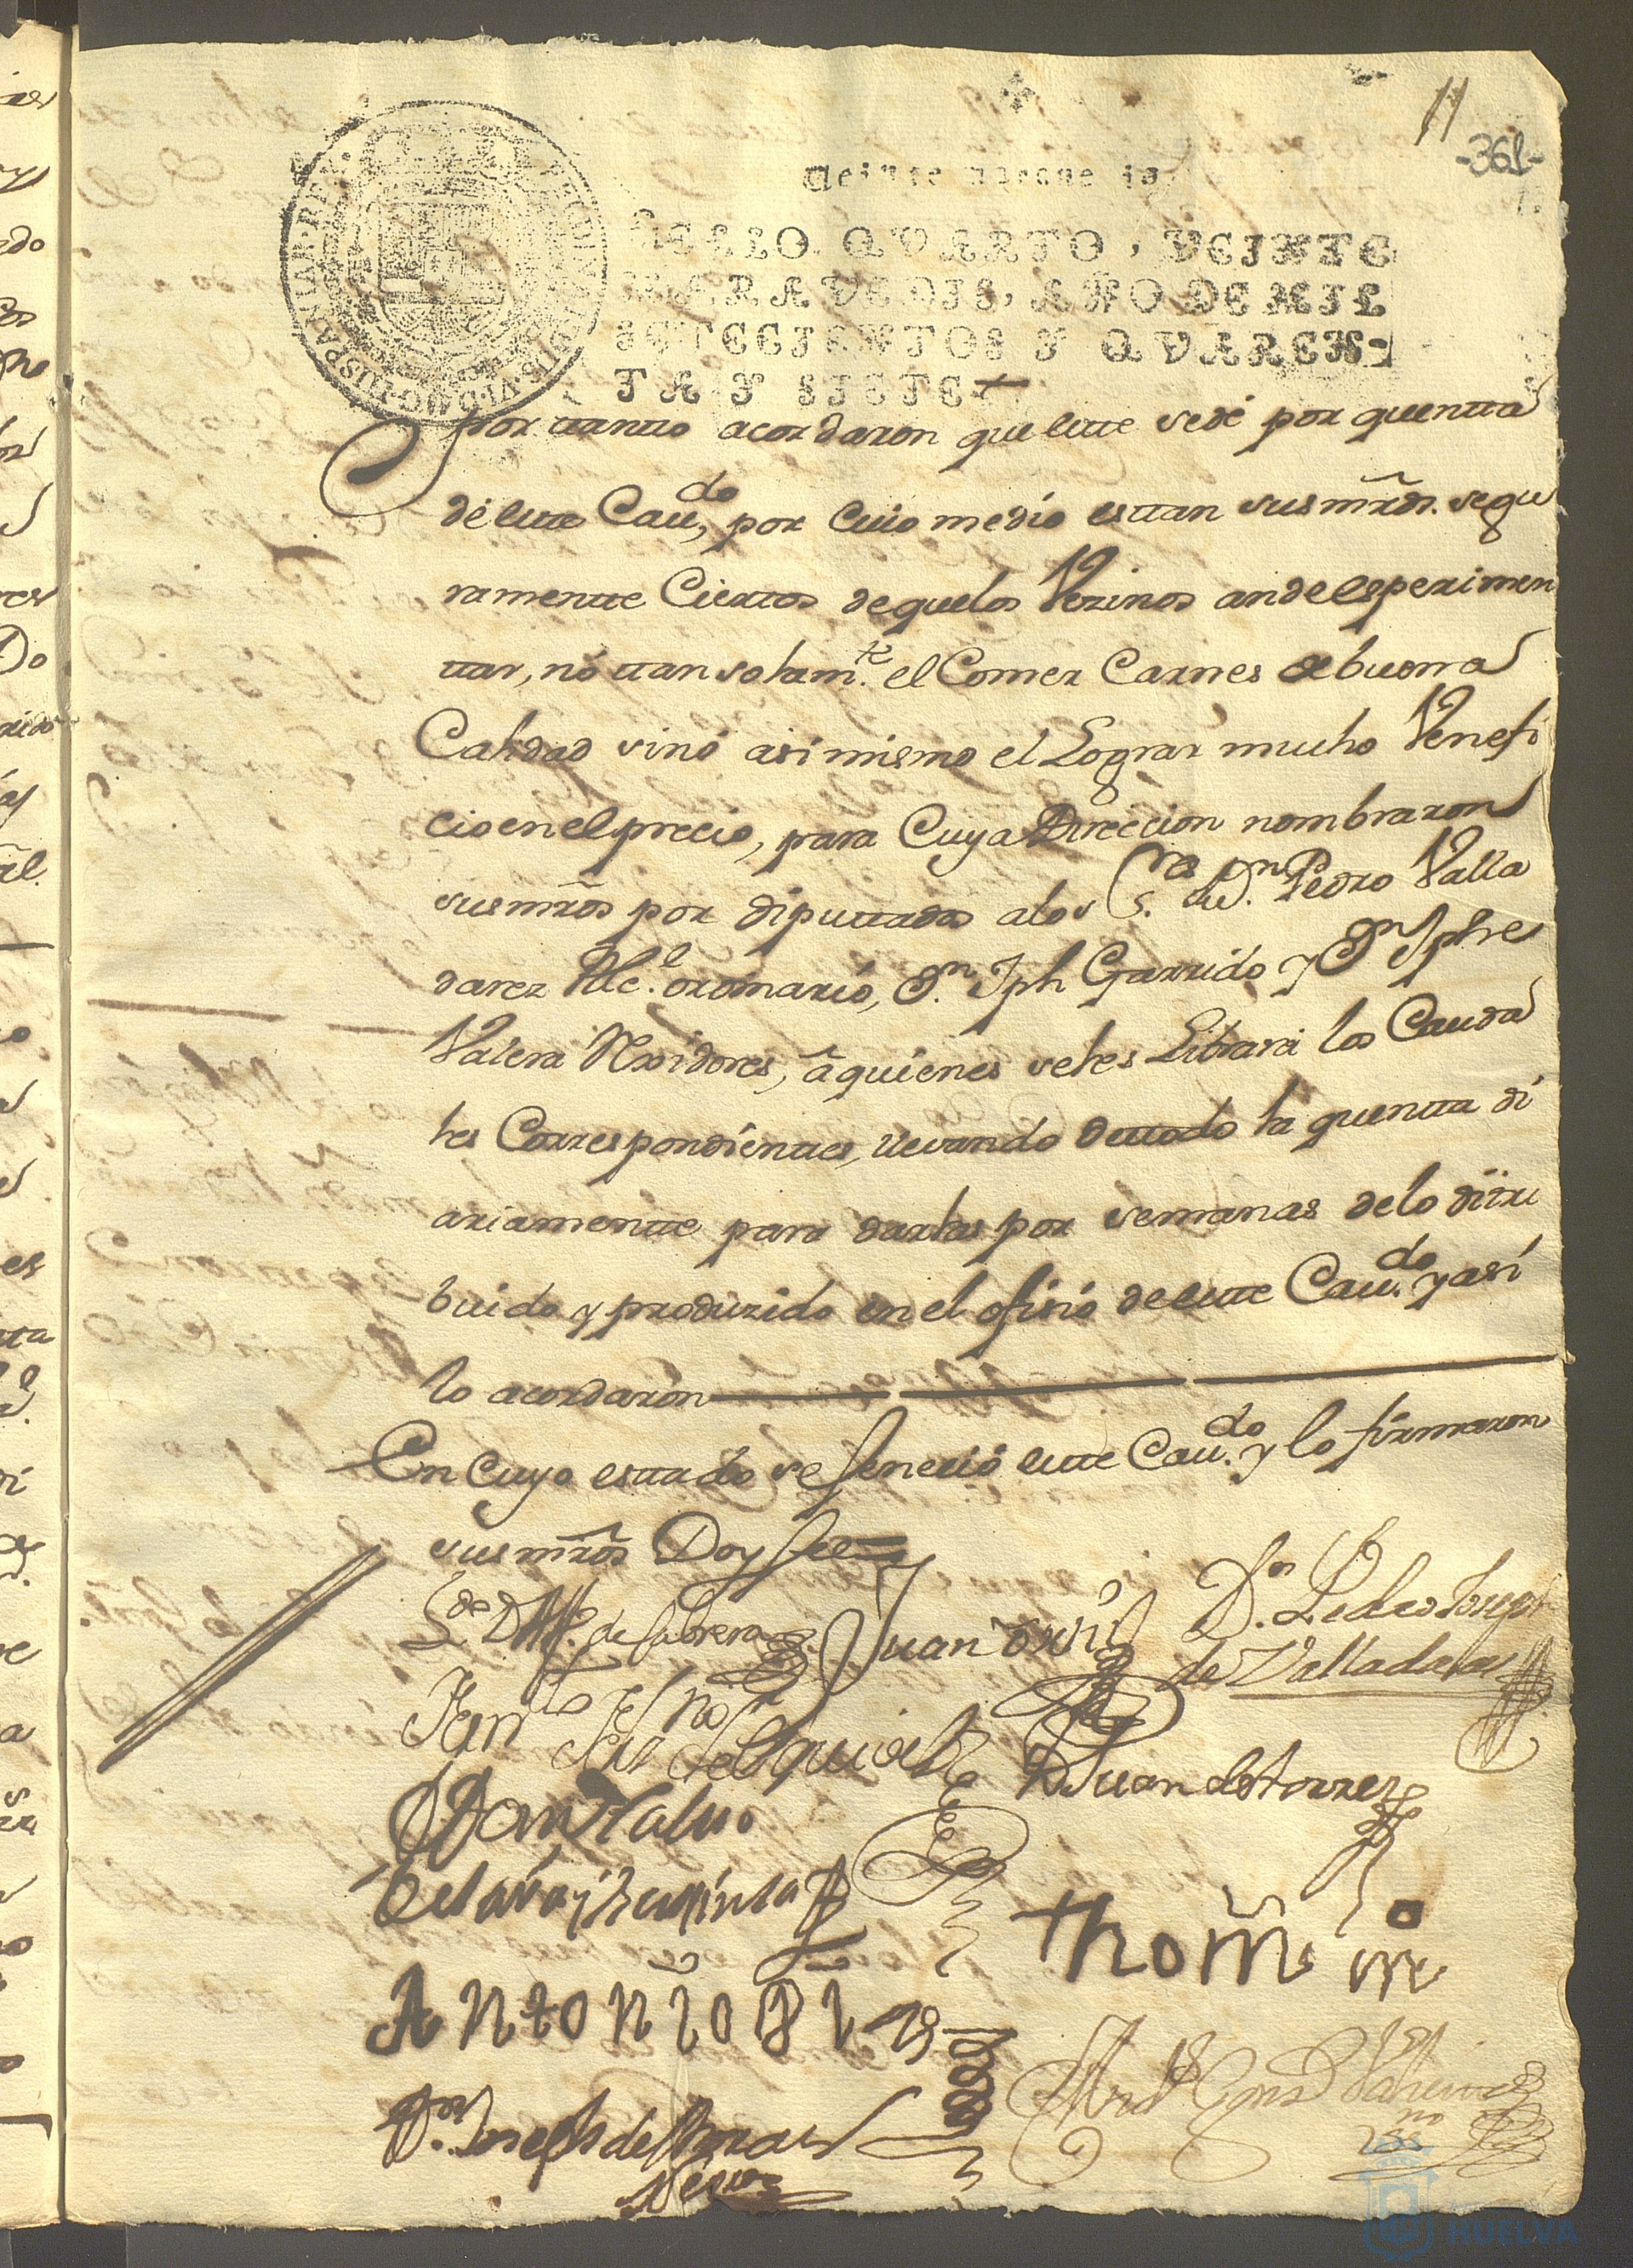 11
-361-
Veinte marauedis
SELLO QVARTO, VEINTE
MARAVEDIS, AÑO DE MIL
SETECIENTOS Y QVAREN-
TA Y SIETE
por ttantto acordaron que estte sedé por quentta
de estte Cau.do, por Cuio medio esttan susmrds. segu
ramentte Ciertos de que los Vezinos an de esperimen
ttar, nó ttan solam.te el Comer Carnes de buena
Calidad sinó asimismo el Lograr mucho Venefi
cio en el precio, para Cuya Direccion nombraron
susmrds por diputtados a los S.res D.n Pedro Valla
darez Alc.e ordinarió, D.n Jph Garrido y D.n Jphe
Valera Rexidores, á quienes seles Librará los Cauda
les Correspondienttes, llevando de ttodo la quentta di
ariamentte para darlas por semanas de lo distri
buido y produzido en el ofizió de estte Cau.do y asi
lo acordaron
En Cuyo esttado se fenezió estte Cau.do y lo firmaron
susmrds Doy fee
de Cabrera
Juan
D.n Pedro Joseph
de Valladares
D Juan de ttorres
Antonio
D.n Joseph de
HUELVA